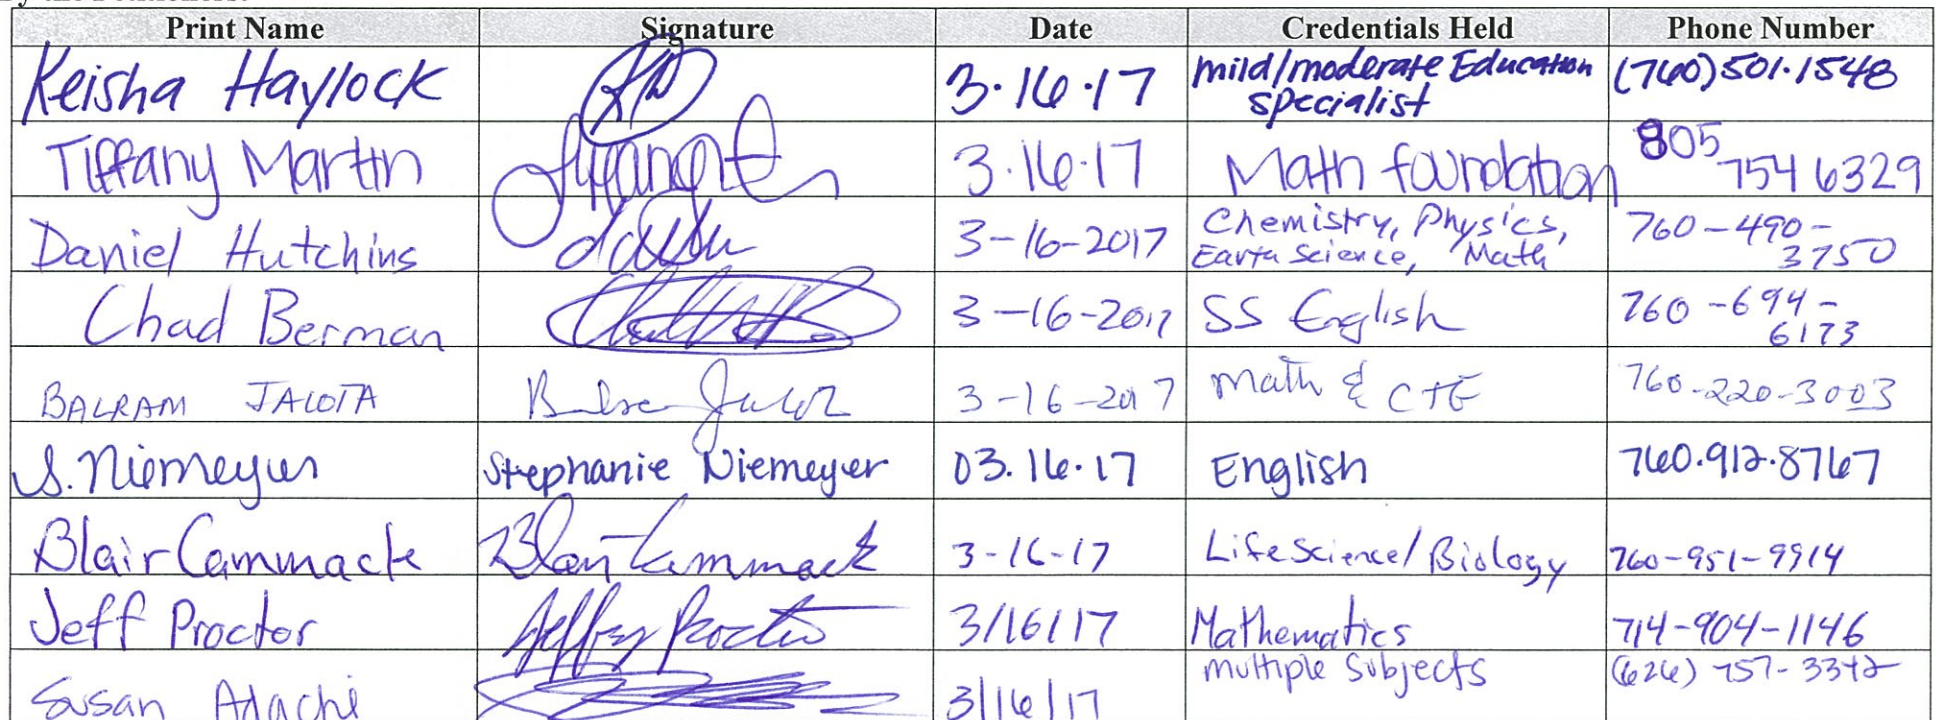 Print Name Signature Date Credentials Held Phone Number
Keisha Haylock 3.16.17 mild/moderate Education specialist (760) 501.1548
Tiffany Martin 3.16.17 Math foundation 805 754 6329
Daniel Hutchins 3-16-2017 Chemistry, Physics, Earth Science, Math 760-490-3750
Chad Berman 3-16-2017 SS English 760-694-6173
BALRAM JALOTA 3-16-2017 Math & CTE 760-220-3003
S. Niemeyer Stephanie Niemeyer 03.16.17 English 760.912.8767
Blair Cammack Blair Cammack 3-16-17 Life Science/Biology 760-951-9914
Jeff Proctor Jeffrey Proctor 3/16/17 Mathematics 714-904-1146
Susan Adachi 3/16/17 multiple Subjects (626) 757-3342